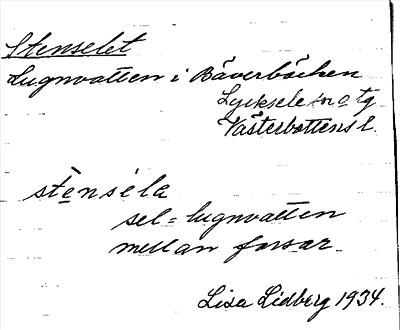 Stenselet
Lugnvatten i Bäverbäcken
Lycksele sn o tg
Västerbottens l.
stensela
sel = lugnvatten
mellan forsar.
Lisa Lidberg 1934.